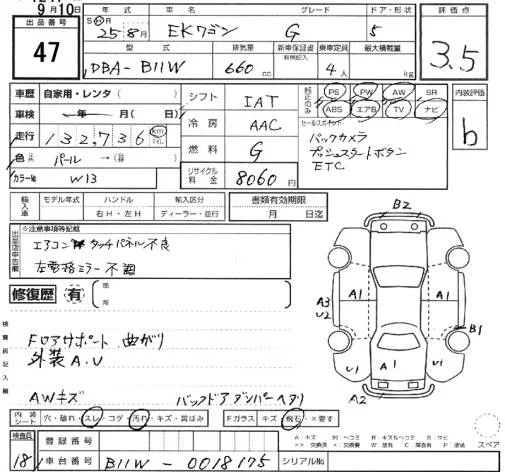 9月10日
出品番号
47
年式
車名
グレード
ドア・形状
評価点
S H R
25年8月
EKワゴン
G
5
3.5
型式
排気量
新車保証書
有無記入
乗車定員
最大積載量
DBA-B11W
660cc
4人
kg
車歴
自家用・レンタ( )
シフト
IAT
純正のみ
PS PW AW SR
ABS エアB TV ナビ
内装評価
b
車検
年 月( )日
冷房
AAC
セールスポイント
バックカメラ
プッシュスタートボタン
ETC
走行
132,736 km マイル
燃料
G
色
パール→( )
カラーNo
W13
リサイクル料金
8060円
輸入車
モデル年式
ハンドル
輸入区分
書類有効期限
右H・左H
ディーラー・並行
月 日迄
出品店申告欄
※注意事項等記載
エアコン タッチパネル不良
左電格ミラー不調
修復歴
有
箇所
B2
A1
A1
A3
U2
B1
U1
A1
U1
A2
検査員記入欄
Fロアサポート 曲がり
外装A.U
AWキズ
バックドアダンパーヘタリ
内装シート
穴・破れ・スレ・コゲ・汚れ・キズ・黄ばみ
Fガラス
キズ・飛石・×要す
検査員
18
登録番号
A キズ
車台番号
B11W-0018175
シリアルNo.
スペア